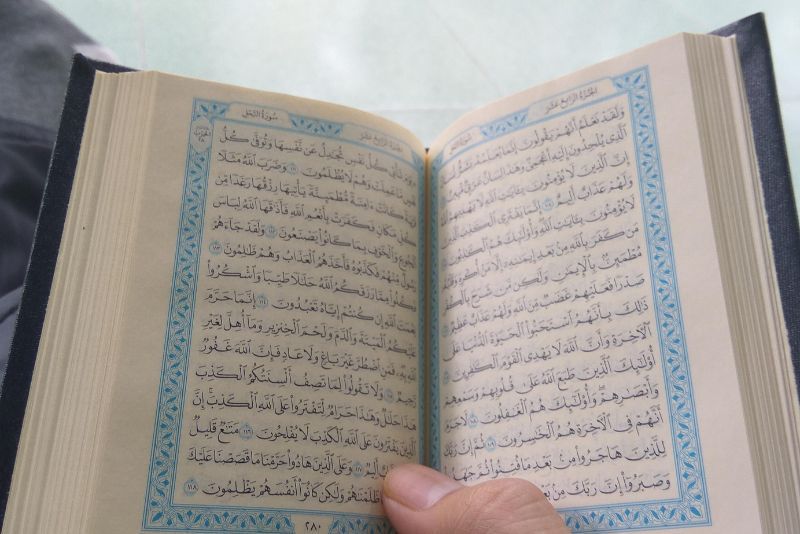 الجزء الرابع عشر
سورة النحل
وَلَقَدْ نَعْلَمُ أَنَّهُمْ يَقُولُونَ إِنَّمَا يُعَلِّمُهُۥ بَشَرٌ
ٱلَّذِى يُلْحِدُونَ إِلَيْهِ أَعْجَمِىٌّ وَهَٰذَا لِسَانٌ عَرَبِىٌّ
إِنَّ ٱلَّذِينَ لَا يُؤْمِنُونَ بِـَٔايَٰتِ ٱللَّهِ لَا يَهْدِيهِمُ ٱللَّهُ
وَلَهُمْ عَذَابٌ أَلِيمٌ ١٠٤ إِنَّمَا يَفْتَرِى ٱلْكَذِبَ ٱلَّذِينَ
لَا يُؤْمِنُونَ بِـَٔايَٰتِ ٱللَّهِ وَأُو۟لَٰٓئِكَ هُمُ ٱلْكَٰذِبُونَ
مَن كَفَرَ بِٱللَّهِ مِنۢ بَعْدِ إِيمَٰنِهِۦٓ إِلَّا مَنْ أُكْرِهَ
مُطْمَئِنٌّۢ بِٱلْإِيمَٰنِ وَلَٰكِن مَّن شَرَحَ بِٱلْكُفْرِ
صَدْرًا فَعَلَيْهِمْ غَضَبٌ مِّنَ ٱللَّهِ وَلَهُمْ عَذَابٌ عَظِيمٌ ١٠٦
ذَٰلِكَ بِأَنَّهُمُ ٱسْتَحَبُّوا۟ ٱلْحَيَوٰةَ ٱلدُّنْيَا عَلَى
ٱلْـَٔاخِرَةِ وَأَنَّ ٱللَّهَ لَا يَهْدِى ٱلْقَوْمَ ٱلْكَٰفِرِينَ ١٠٧
أُو۟لَٰٓئِكَ ٱلَّذِينَ طَبَعَ ٱللَّهُ عَلَىٰ قُلُوبِهِمْ وَسَمْعِهِمْ
وَأَبْصَٰرِهِمْ وَأُو۟لَٰٓئِكَ هُمُ ٱلْغَٰفِلُونَ ١٠٨ لَا جَرَمَ
أَنَّهُمْ فِى ٱلْـَٔاخِرَةِ هُمُ ٱلْخَٰسِرُونَ ١٠٩ ثُمَّ إِنَّ رَبَّكَ
لِلَّذِينَ هَاجَرُوا۟ مِنۢ بَعْدِ مَا فُتِنُوا۟ ثُمَّ جَٰهَدُوا۟
وَصَبَرُوٓا۟ إِنَّ رَبَّكَ مِنۢ
الجزء الرابع عشر
سورة النحل
يَوْمَ تَأْتِى كُلُّ نَفْسٍ تُجَٰدِلُ عَن نَّفْسِهَا وَتُوَفَّىٰ كُلُّ
نَفْسٍ مَّا عَمِلَتْ وَهُمْ لَا يُظْلَمُونَ ١١١ وَضَرَبَ ٱللَّهُ مَثَلًا
قَرْيَةً كَانَتْ ءَامِنَةً مُّطْمَئِنَّةً يَأْتِيهَا رِزْقُهَا رَغَدًا مِّن
كُلِّ مَكَانٍ فَكَفَرَتْ بِأَنْعُمِ ٱللَّهِ فَأَذَٰقَهَا ٱللَّهُ لِبَاسَ
ٱلْجُوعِ وَٱلْخَوْفِ بِمَا كَانُوا۟ يَصْنَعُونَ ١١٢ وَلَقَدْ جَآءَهُمْ
رَسُولٌ مِّنْهُمْ فَكَذَّبُوهُ فَأَخَذَهُمُ ٱلْعَذَابُ وَهُمْ ظَٰلِمُونَ ١١٣
فَكُلُوا۟ مِمَّا رَزَقَكُمُ ٱللَّهُ حَلَٰلًا طَيِّبًا وَٱشْكُرُوا۟
نِعْمَتَ ٱللَّهِ إِن كُنتُمْ إِيَّاهُ تَعْبُدُونَ ١١٤ إِنَّمَا حَرَّمَ
عَلَيْكُمُ ٱلْمَيْتَةَ وَٱلدَّمَ وَلَحْمَ ٱلْخِنزِيرِ وَمَآ أُهِلَّ لِغَيْرِ
ٱللَّهِ بِهِۦ فَمَنِ ٱضْطُرَّ غَيْرَ بَاغٍ وَلَا عَادٍ فَإِنَّ ٱللَّهَ غَفُورٌ
رَّحِيمٌ ١١٥ وَلَا تَقُولُوا۟ لِمَا تَصِفُ أَلْسِنَتُكُمُ ٱلْكَذِبَ
هَٰذَا حَلَٰلٌ وَهَٰذَا حَرَامٌ لِّتَفْتَرُوا۟ عَلَى ٱللَّهِ ٱلْكَذِبَ إِنَّ
ٱلَّذِينَ يَفْتَرُونَ عَلَى ٱللَّهِ ٱلْكَذِبَ لَا يُفْلِحُونَ ١١٦ مَتَٰعٌ قَلِيلٌ
أَلِيمٌ ١١٧ وَعَلَى ٱلَّذِينَ هَادُوا۟ حَرَّمْنَا مَا قَصَصْنَا عَلَيْكَ
ظَلَمْنَٰهُمْ وَلَٰكِن كَانُوٓا۟ أَنفُسَهُمْ يَظْلِمُونَ ١١٨
٢٨٠